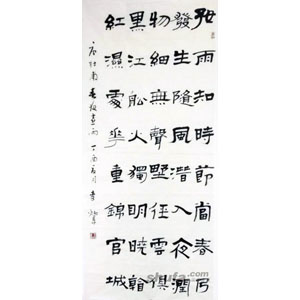 好雨知時節當春乃
發生隨風潛入夜潤
物細無聲野徑雲俱
黑江舩火獨明曉看
紅濕處華重錦官城
唐杜甫春夜喜雨 丁酉 月
shufa.com